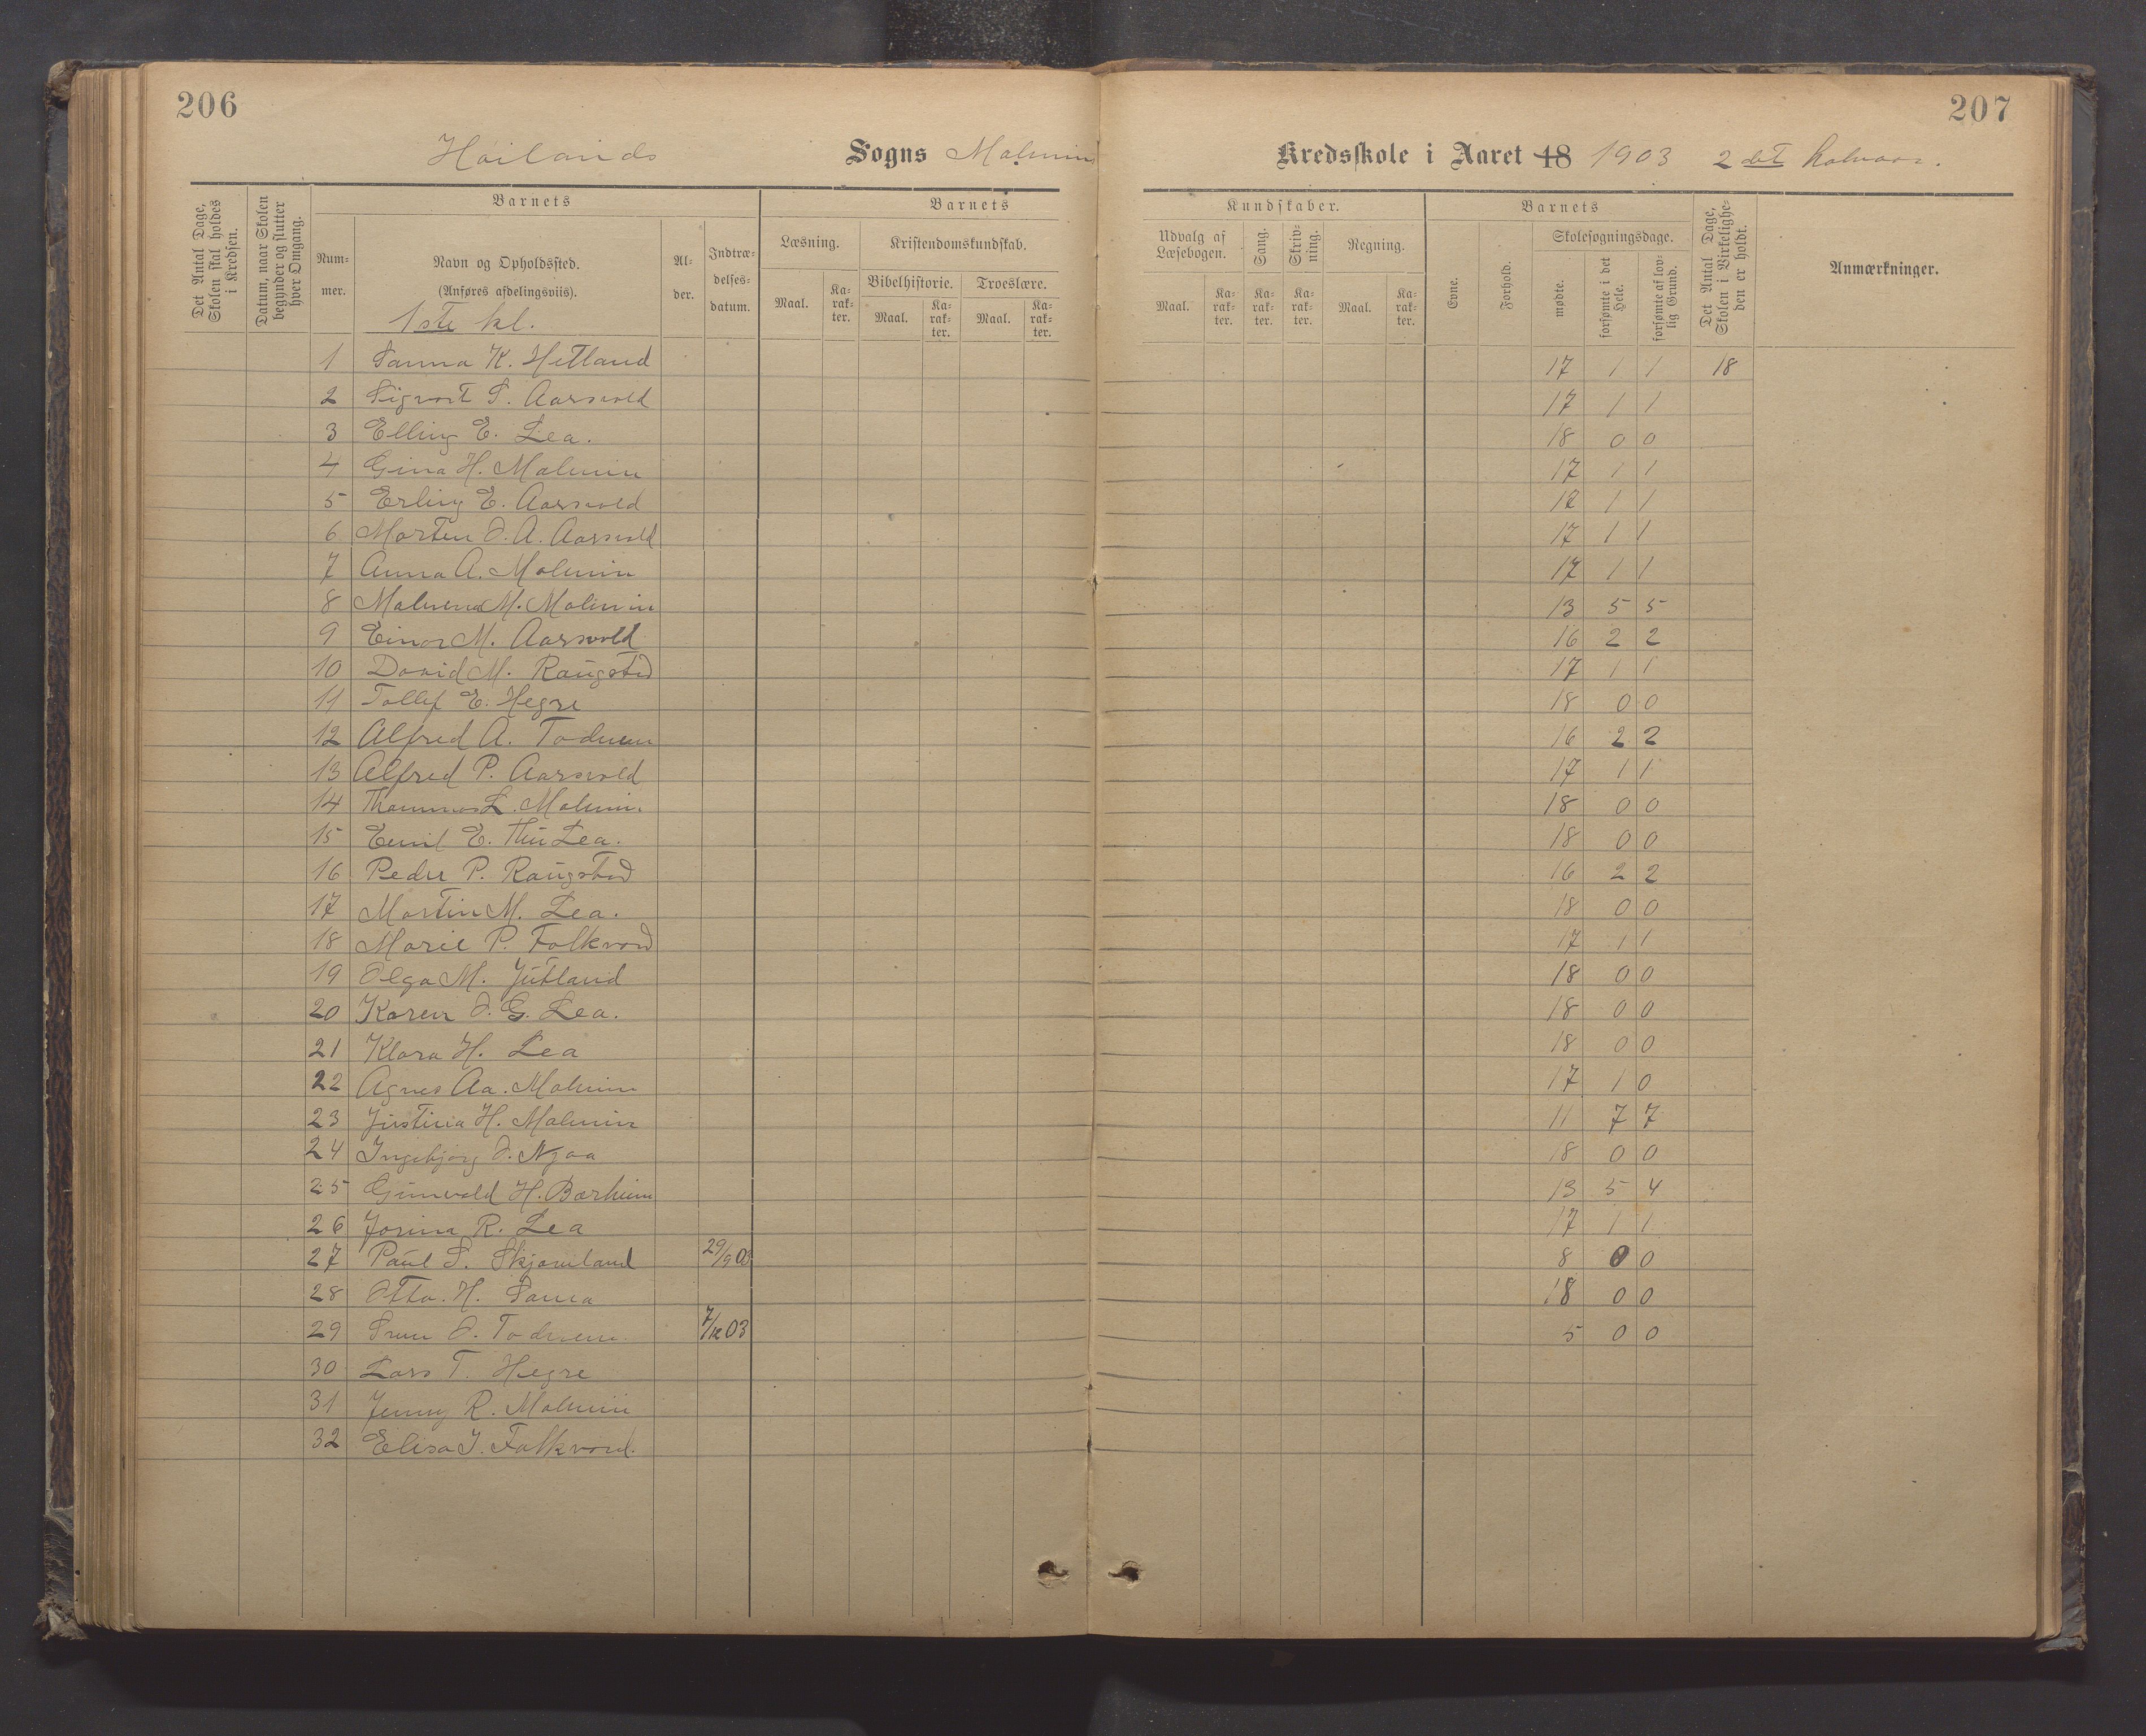 206
207
Høilands Sogns Malmins Kredsskole i Aaret 18 1903 2 det halvaar.
Det Antal Dage, Skolen skal holdes i Kredsen.
Datum, naar Skolen begynder og slutter hver Omgang.
Barnets
Nummer.
Navn og Opholdssted.
(Anføres afdelingsviis).
1ste kl.
Alder.
Indtrædelsesdatum.
Barnets
Læsning.
Maal.
Karakter.
Kristendomskundskab.
Bibelhistorie.
Maal.
Karakter.
Troeslære.
Maal.
Karakter.
Kundskaber.
Udvalg af Læsebogen.
Maal.
Karakter.
Sang.
Karakter.
Skrivning.
Karakter.
Regning.
Maal.
Karakter.
Barnets
Evne.
Forhold.
Skolesøgningsdage.
mødte.
forsømte i det Hele.
forsømte af lovlig Grund.
Det Antal Dage, Skolen i Virkeligheden er holdt.
Anmærkninger.
1 Sanna K. Hetland 17 1 1 18
2 Sigvart S. Aarsvold 17 1 1
3 Elling E. Lea. 18 0 0
4 Gina H. Malmin 17 1 1
5 Erling E. Aarsvold 17 1 1
6 Morten O. A. Aarsvold 17 1 1
7 Anna A. Malmin 17 1 1
8 Malvena M. Malmin 13 5 5
9 Einar M. Aarsvold 16 2 2
10 David M. Raugstad 17 1 1
11 Tollef E. Hegre 18 0 0
12 Alfred A. Todnem 16 2 2
13 Alfred P. Aarsvold 17 1 1
14 Thommas L. Malmin. 18 0 0
15 Emil E. Thu Lea. 18 0 0
16 Peder P. Raugstad 16 2 2
17 Martin M. Lea. 18 0 0
18 Marie P. Folkvord 17 1 1
19 Olga M. Jutland 18 0 0
20 Karen O. G. Lea. 18 0 0
21 Klara H. Lea 18 0 0
22 Agnes Aa. Malmin 17 1 0
23 Justina H. Malmin 11 7 7
24 Ingebjørg O. Njaa 18 0 0
25 Gunvald H. Bærheim 13 5 4
26 Josina R. Lea 17 1 1
27 Paul S. Skjæveland 29/9 03 8 0 0
28 Otto. H. 18 0 0
29 O. Todnem 7/12 03 5 0 0
30 Lars T. Hegre
31 Jenny R. Malmin
32 Elisa J. Folkvord.